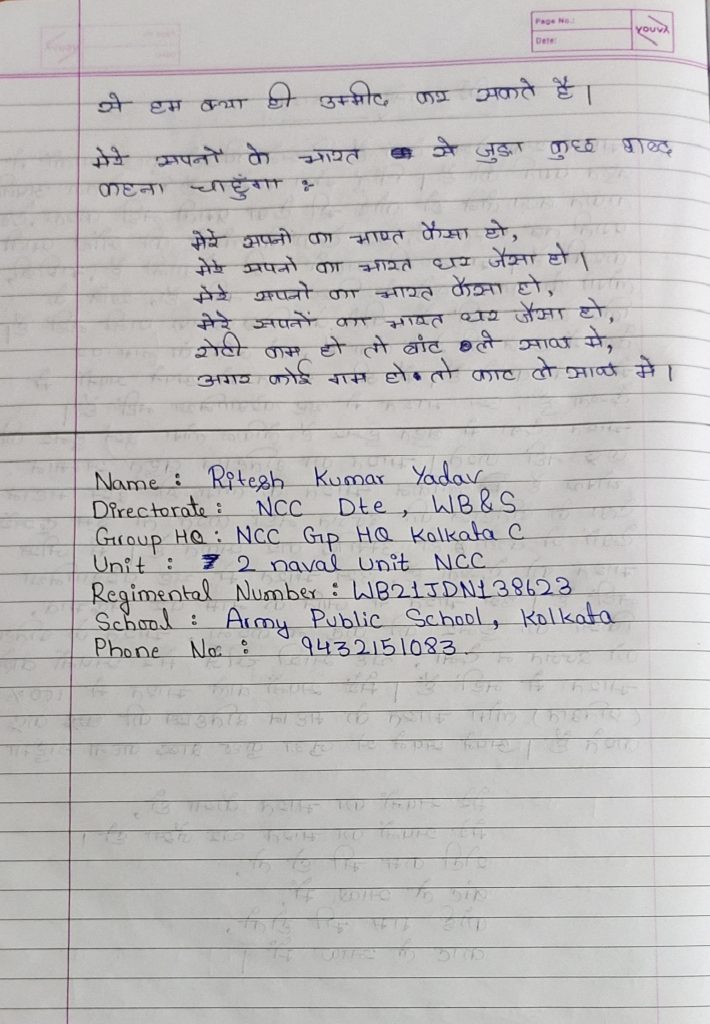 Page No.:
Date:
YOUVA
से हम क्या ही उम्मीद कर सकते है।
मेरे सपनों के भारत से जुड़ा कुछ शब्द
कहना चाहुंगा :
मेरे सपनो का भारत कैसा हो,
मेरे सपनो का भारत घर जैसा हो।
मेरे सपनो का भारत कैसा हो,
मेरे सपनों का भारत घर जैसा हो,
रोटी कम हो तो बांट ले साथ मे,
अगर कोई गम हो तो काट ले साथ मे।
Name : Ritesh Kumar Yadav
Directorate : NCC Dte, WB&S
Group HQ : NCC Gp HQ Kolkata C
Unit : 2 naval unit NCC
Regimental Number : WB21JDN138623
School : Army Public School, Kolkata
Phone No. : 9432151083.